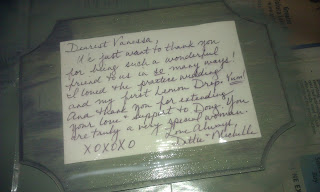 Dearest Vanessa,
I/c just want to thank you
for being such a wonderful
friend to us in so many ways!
I loved the practice wedding
and my first Lemon Drop! Yum!
And thank you for extending
your love & support to Doug. You
are truly a very special woman.
Love Always,
XOXOXO Dottie & Michelle